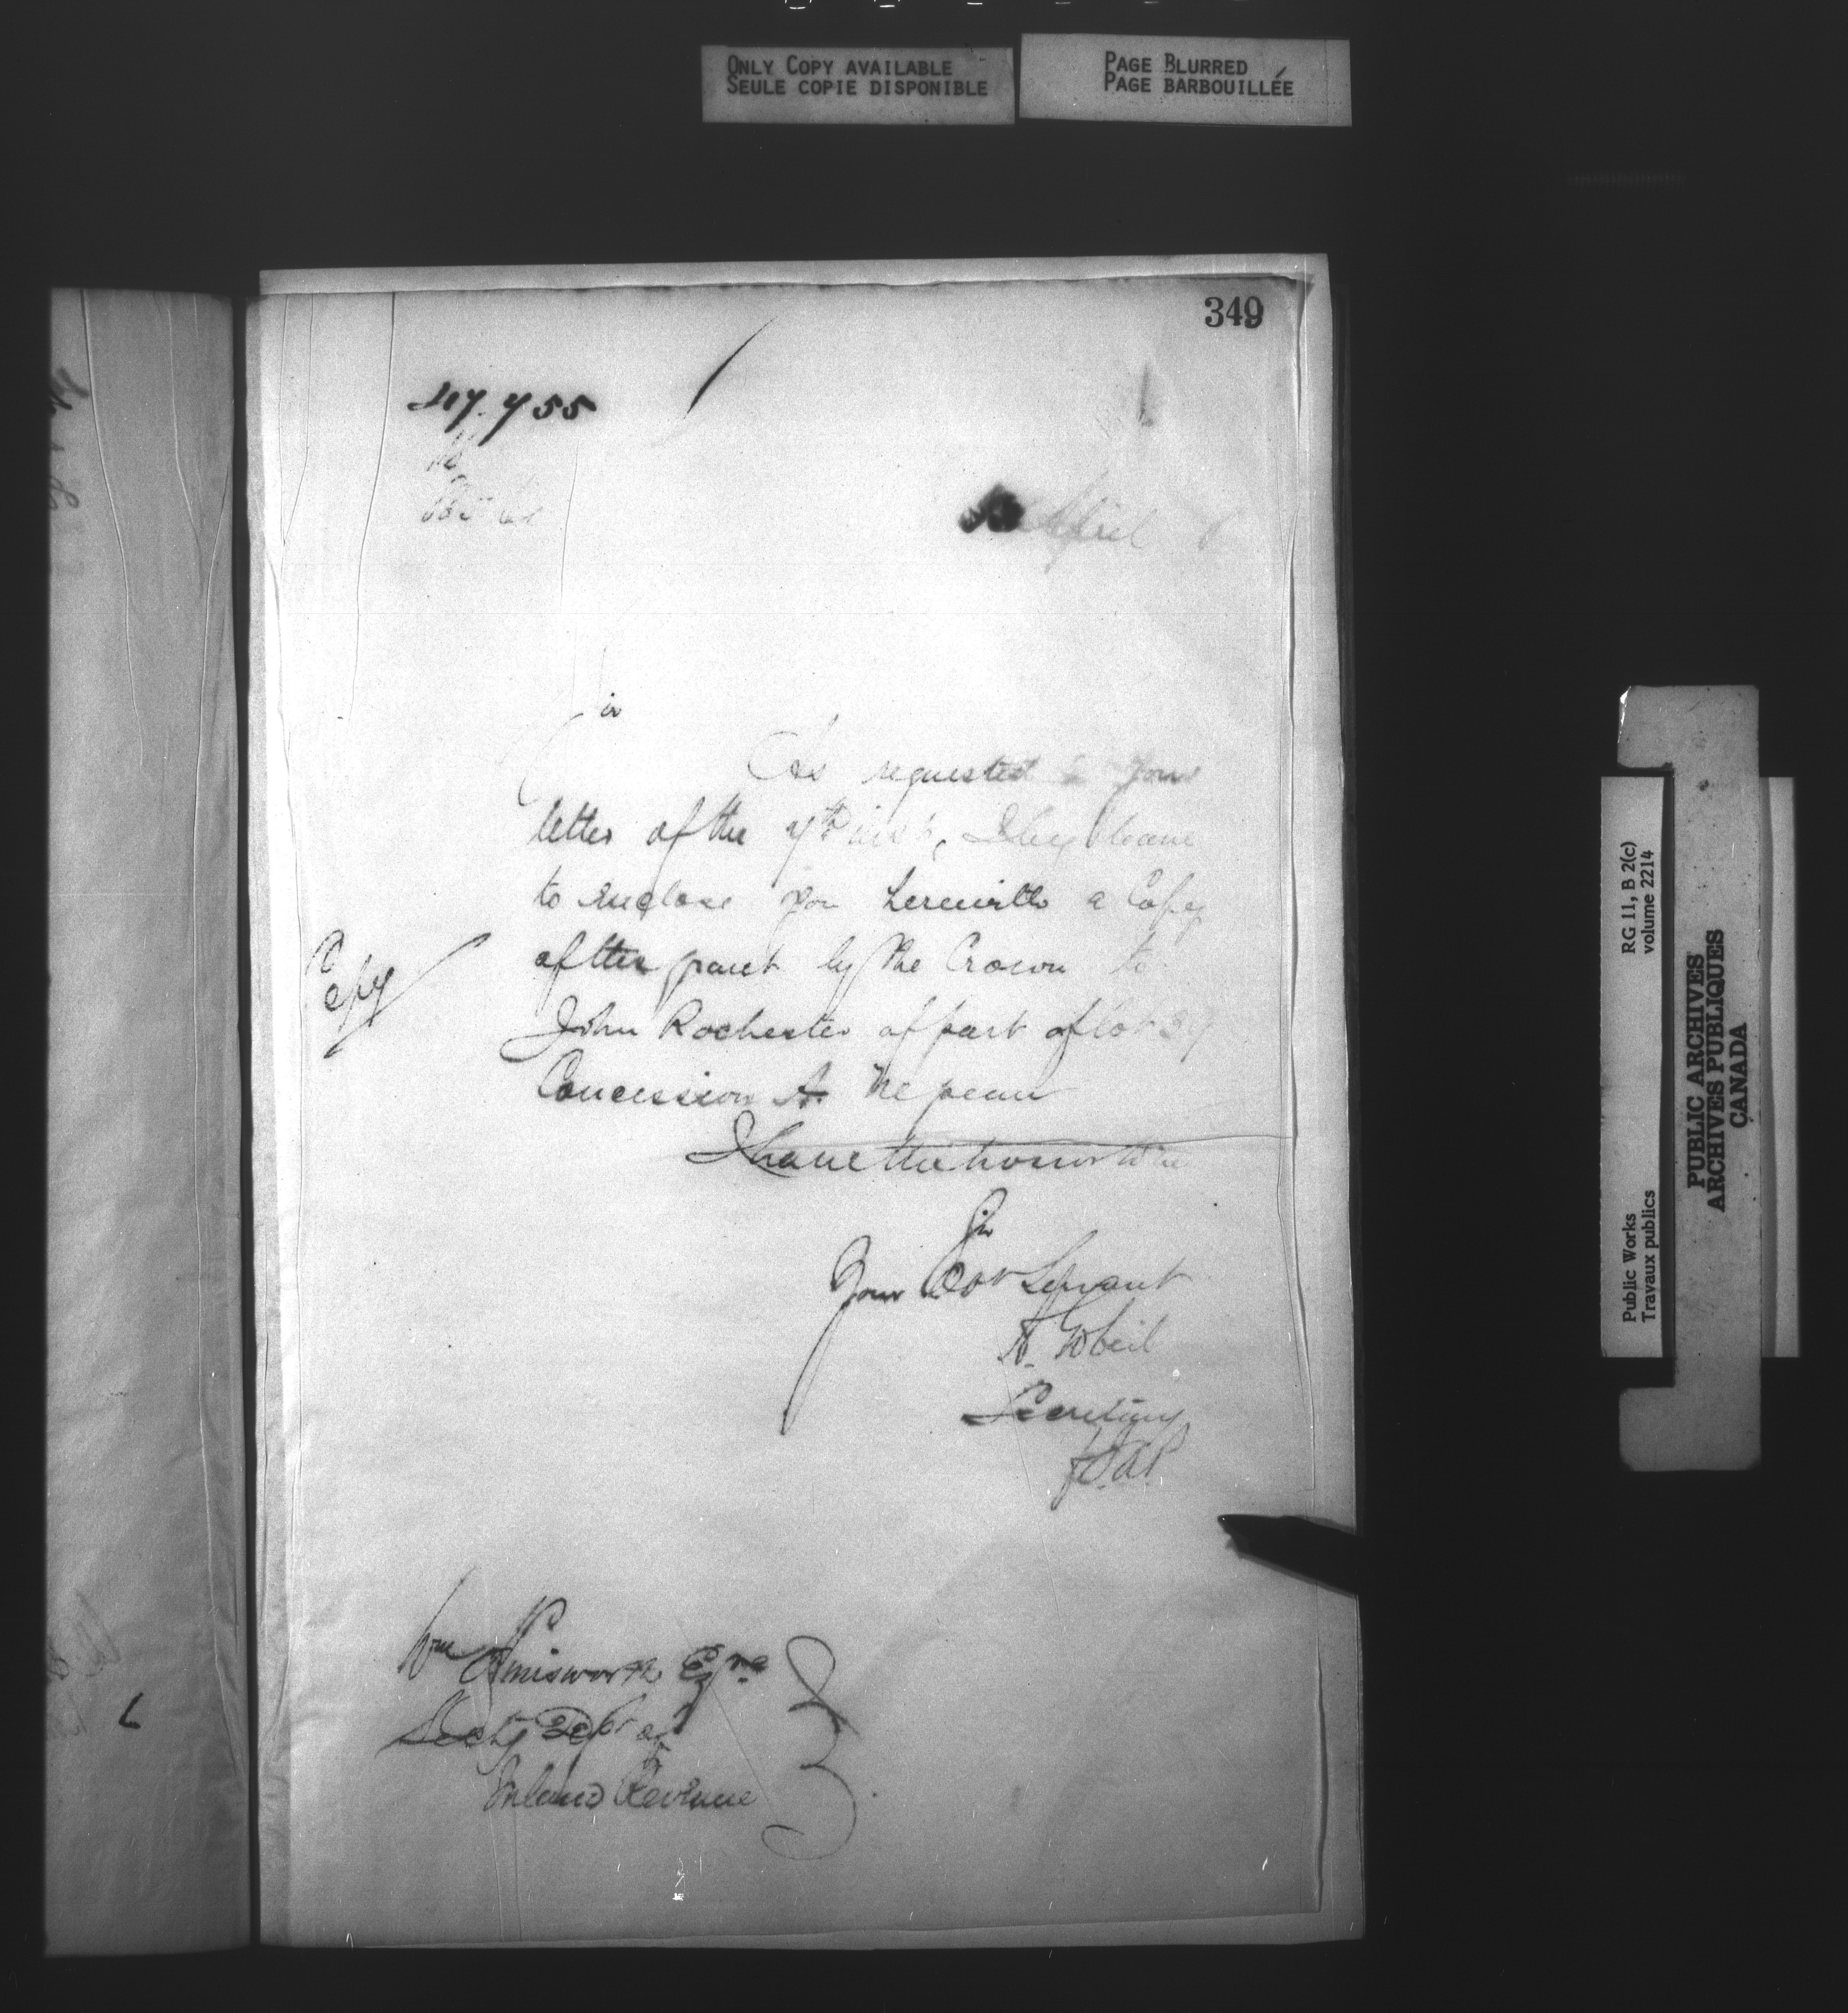 ONLY COPY AVAILABLE
SEULE COPIE DISPONIBLE
PAGE BLURRED
PAGE BARBOUILLÉE
349
47.755
April
Sir
As requested in your
letter of the 7th inst, I beg leave
to enclose you herewith a Copy
of the grant by the Crown to
Copy
John Rochester of part of lot 39
Concession A. Nepean
I have the honor to be
Sir
Your Obt Servant
A. Gobeil
Secretary
Wm Esqre
Secty Dept of
Inland Revenue
Public Works
Travaux publics
RG 11, B 2(c)
volume 2214
PUBLIC ARCHIVES
ARCHIVES PUBLIQUES
CANADA